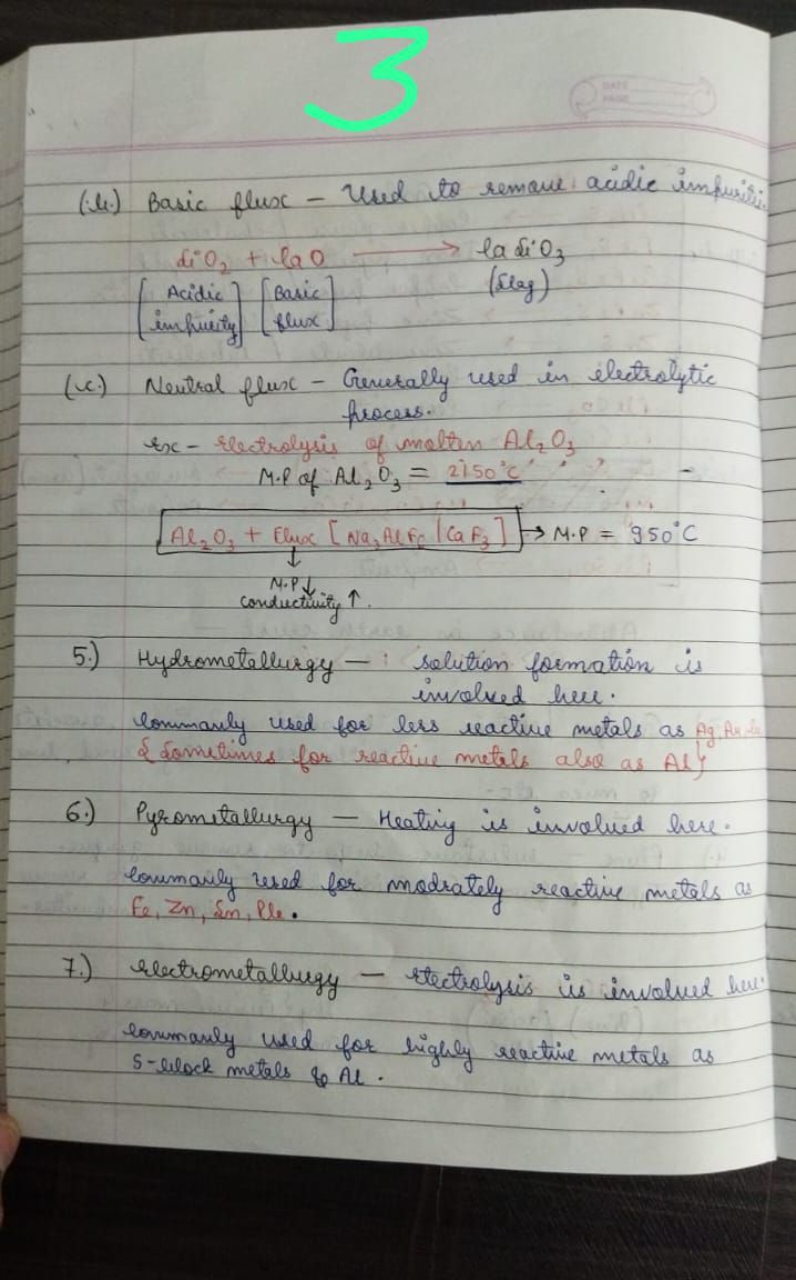 3
DATE
PAGE
(b.) Basic flux – Used to remove acidic impurities.
SiO₂ + CaO ⟶ CaSiO₃
[Acidic impurity] [Basic flux] (Slag)
(c.) Neutral flux – Generally used in electrolytic
process.
Ex – Electrolysis of molten Al₂O₃
M.P of Al₂O₃ = 2150°C
Al₂O₃ + Flux [Na₃AlF₆ / CaF₂] → M.P = 950°C
↓
M.P↓
conductivity ↑.
5.) Hydrometallurgy – : solution formation is
involved here.
Commanly used for less reactive metals as Ag, Au,
{Sometimes for reactive metals also as Al}
6.) Pyrometallurgy – Heating is involved here.
Commanly used for modrately reactive metals as
Fe, Zn, Sn, Pb.
7.) Electrometallurgy – Electrolysis is involved here.
Commanly used for highly reactive metals as
S-block metals & Al.